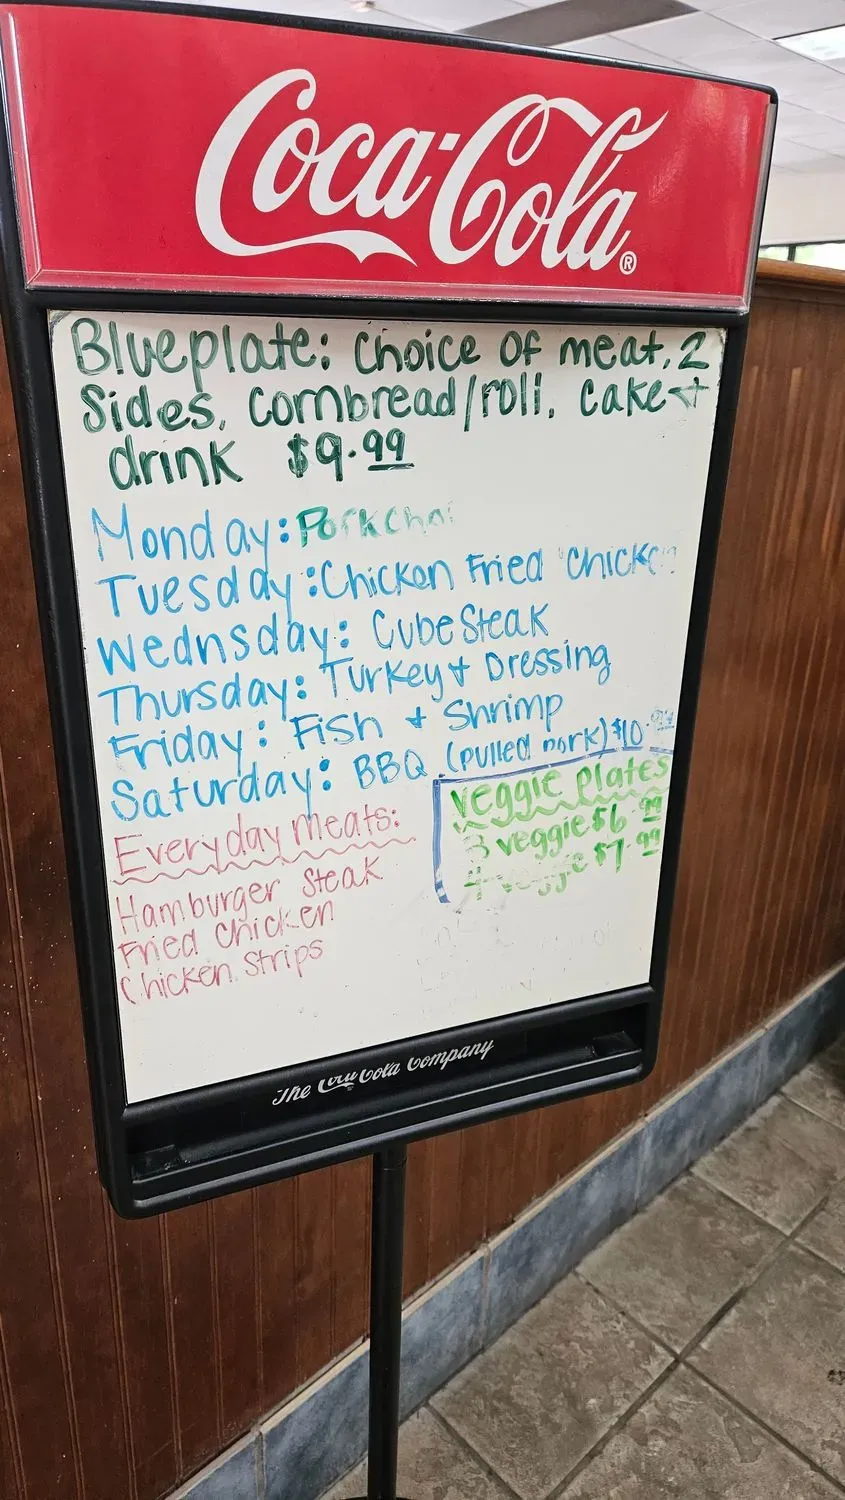 Coca-Cola®
Blueplate: Choice of meat, 2
Sides, cornbread/roll, cake +
drink $9.99
Monday: Pork cho
Tuesday: Chicken Fried Chicke
Wednsday: Cube Steak
Thursday: Turkey + Dressing
Friday: Fish + Shrimp
Saturday: BBQ (pulled pork) $10.99
Everyday meats:
Hamburger Steak
Fried Chicken
Chicken Strips
Veggie plates
3 veggie $6.99
4 veggie $7.99
The Coca-Cola Company